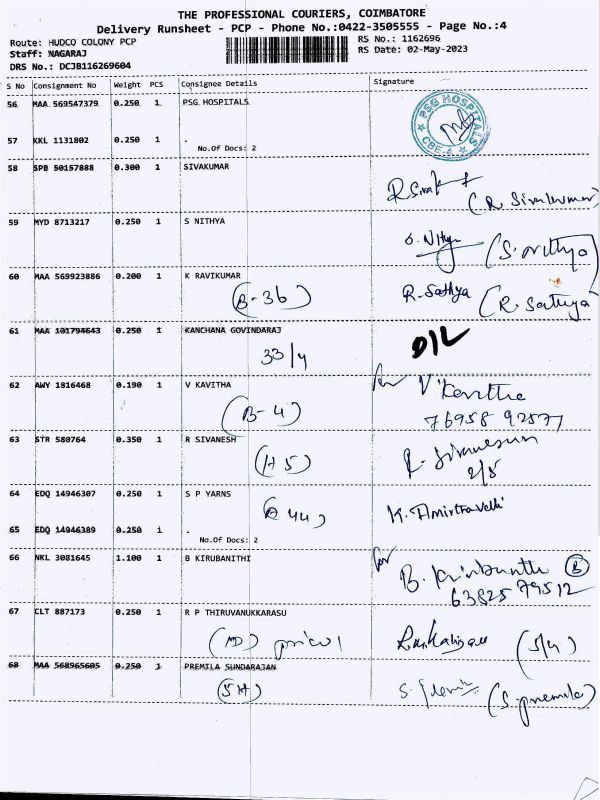 THE PROFESSIONAL COURIERS, COIMBATORE
Delivery Runsheet - PCP - Phone No.:0422-3505555 - Page No.:4
Route: HUDCO COLONY PCP
RS No.: 1162696
Staff: NAGARAJ
RS Date: 02-May-2023
DRS No.: DCJB116269604
S No Consignment No Weight PCS Consignee Details Signature
56 MAA 569547379 0.250 1 PSG HOSPITALS
PSG HOSPITALS
CBE-4
57 KKL 1131802 0.250 1 .
No.Of Docs: 2
58 SPB 50157888 0.300 1 SIVAKUMAR
(R. Sivakumar)
59 MYD 8713217 0.250 1 S NITHYA
S. Nithya (S. nithya)
60 MAA 569923886 0.200 1 K RAVIKUMAR
(B-36) R. Sathya (R. Sathya)
61 MAA 101794643 0.250 1 KANCHANA GOVINDARAJ
33/4 D/L
62 AWY 1816468 0.190 1 V KAVITHA
for V Kavitha
(B-4) 76958 92577
63 STR 580764 0.350 1 R SIVANESH
(H5) 2/5
64 EDQ 14946307 0.250 1 S P YARNS
K. Amirtravelli
65 EDQ 14946389 0.250 1 .
No.Of Docs: 2
66 NKL 3081645 1.100 1 B KIRUBANITHI
for B. Kirubanithi (B)
63825 79512
67 CLT 887173 0.250 1 R P THIRUVANUKKARASU
(5/4)
68 MAA 568965605 0.250 1 PREMILA SUNDARAJAN
(5H) (S. premila)